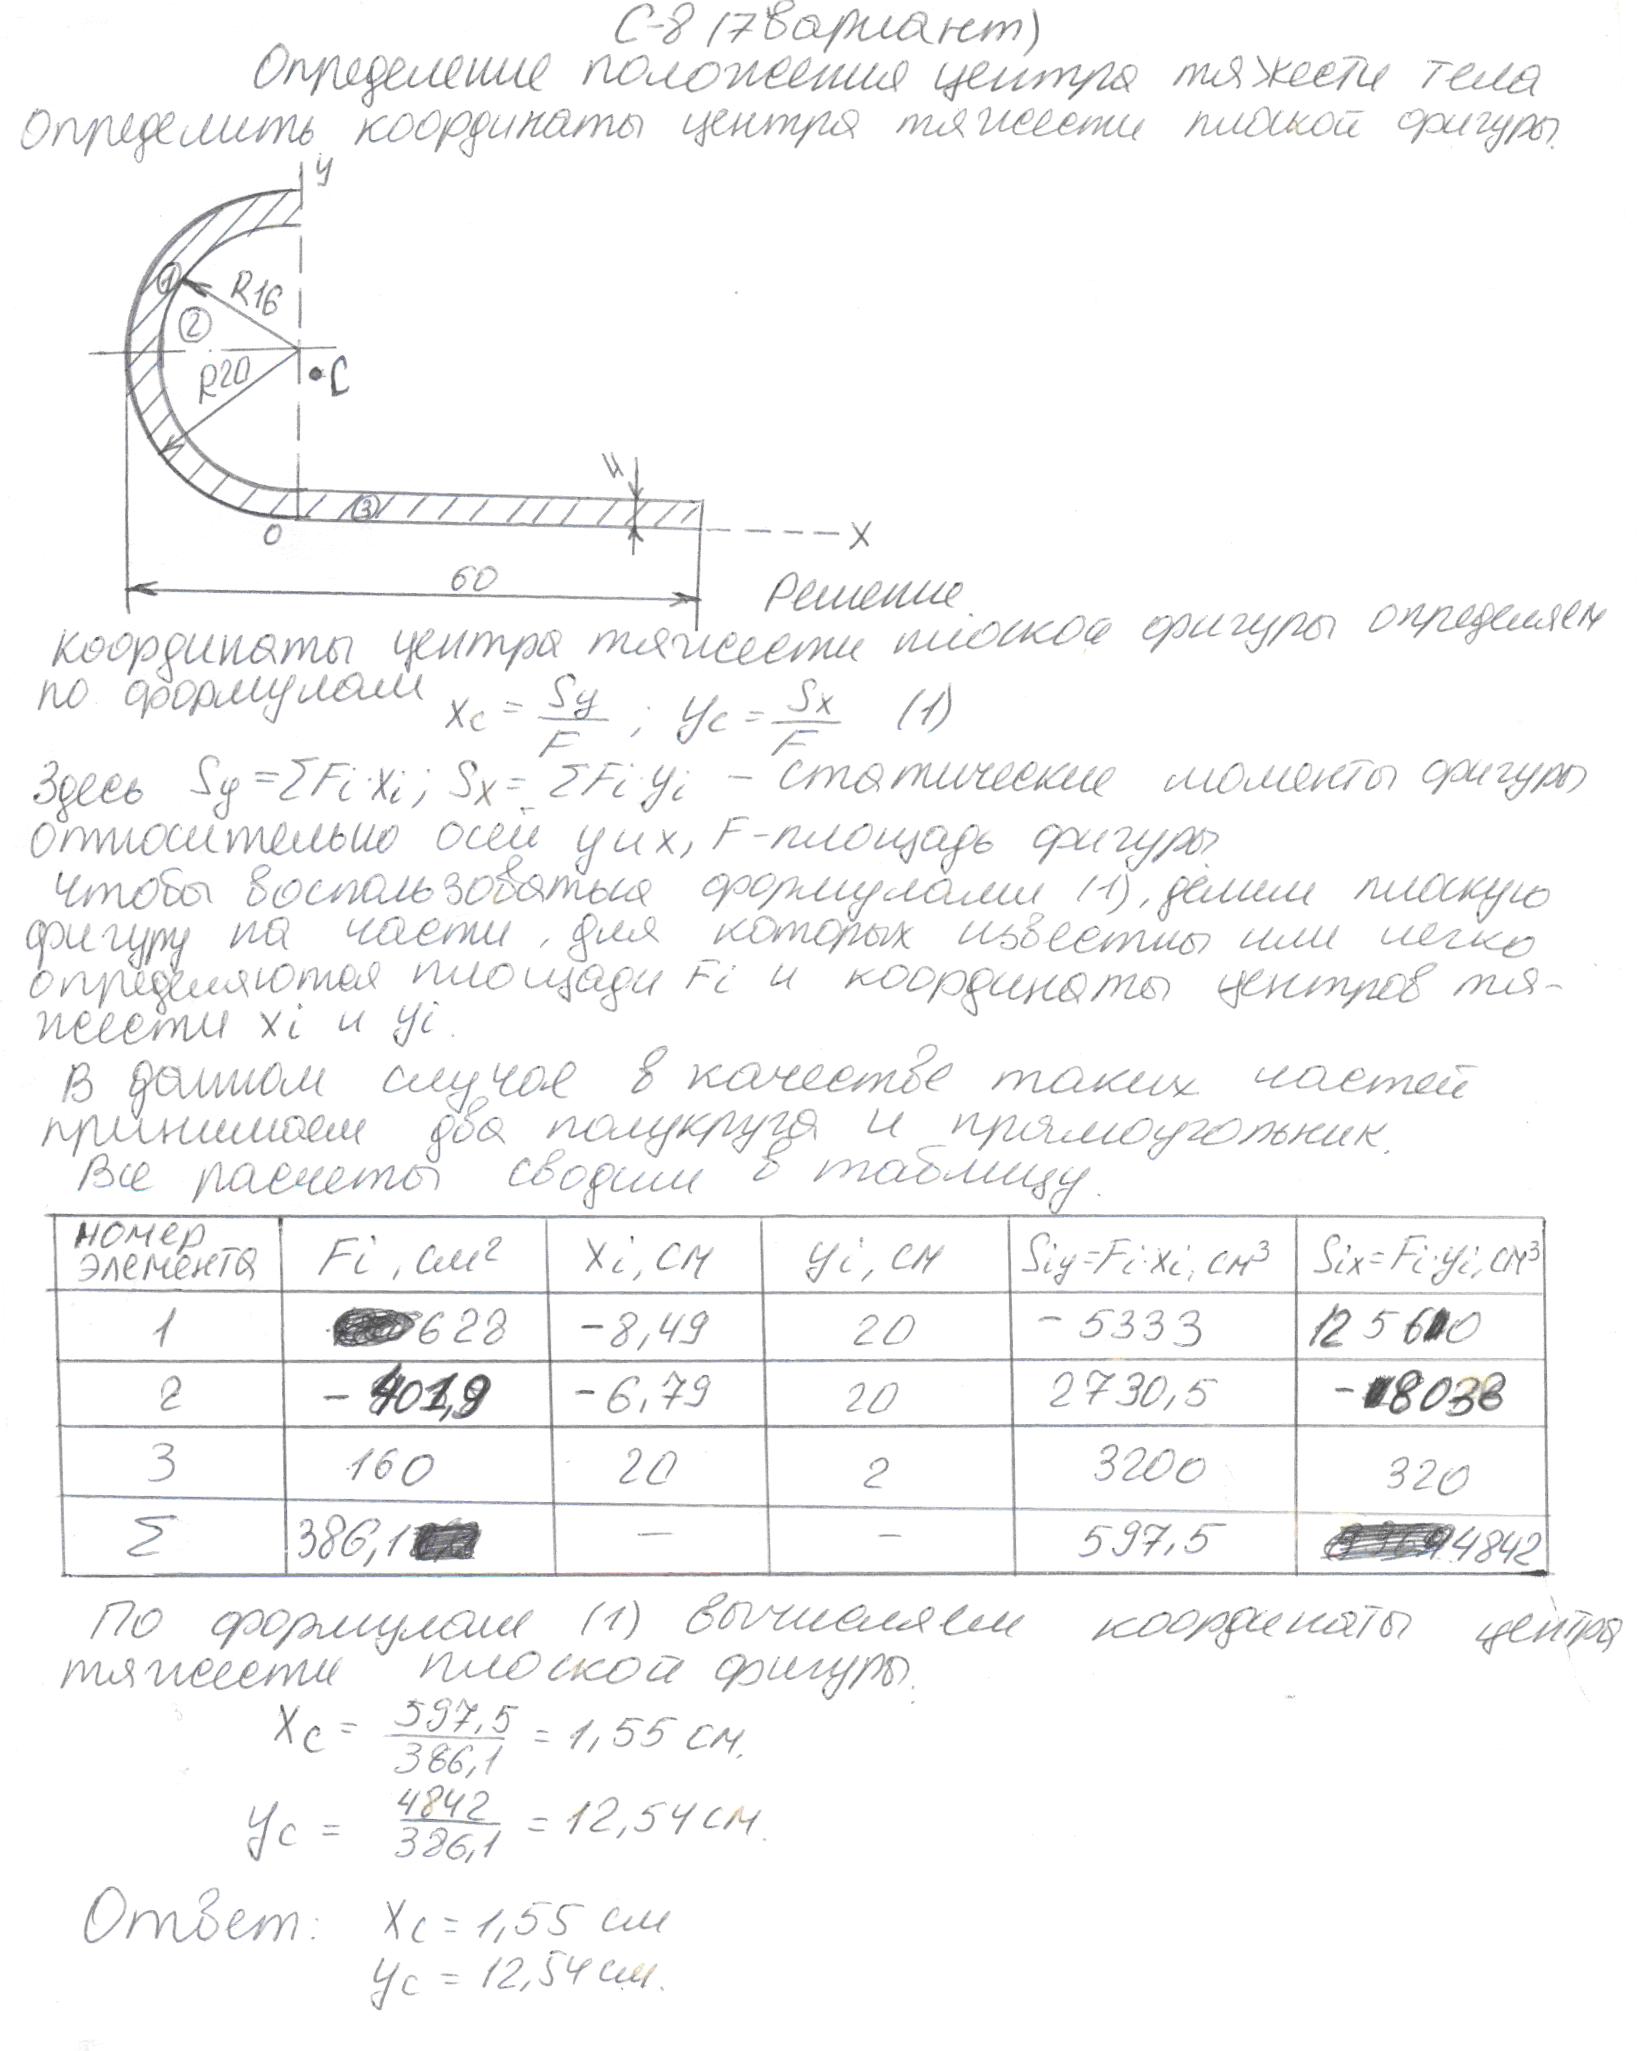 С-8 (7 вариант)
Определение положения центра тяжести тела
Определить координаты центра тяжести плоской фигуры.
У
1
R16
2
R20
С
4
3
О
Х
60
Решение.
Координаты центра тяжести плоской фигуры определяем
по формулам
Xc = Sy/F ; Yc = Sx/F (1)
Здесь Sy = ΣFi·Xi; Sx = ΣFi·yi – статические моменты фигуры
относительно осей y и x, F – площадь фигуры.
Чтобы воспользоваться формулами (1), делим плоскую
фигуру на части, для которых известны или легко
определяются площади Fi и координаты центров тя-
жести Xi и yi.
В данном случае в качестве таких частей
принимаем два полукруга и прямоугольник.
Все расчеты сводим в таблицу.
номер элемента Fi, см² Xi, см yi, см Siy=Fi·Xi, см³ Six=Fi·yi, см³
1 628 -8,49 20 -5333 12560
2 -401,9 -6,79 20 2730,5 -8038
3 160 20 2 3200 320
Σ 386,1 – – 597,5 4842
По формулам (1) вычисляем координаты центра
тяжести плоской фигуры.
Xc = 597,5/386,1 = 1,55 см.
Yc = 4842/386,1 = 12,54 см.
Ответ: Xc = 1,55 см
Yc = 12,54 см.